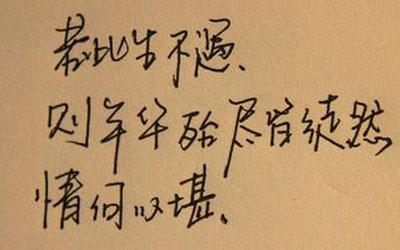 若此生不遇、
则年华殆尽皆徒然
情何以堪、